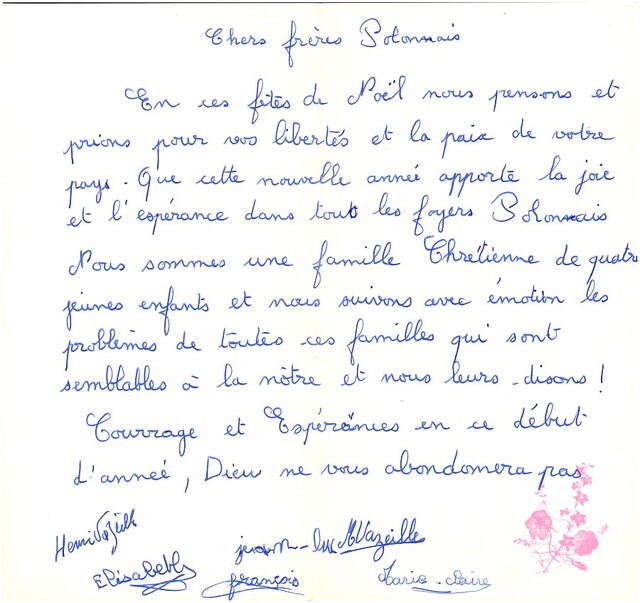 Chers frères Polonnais
En ces fêtes de Noël nous pensons et
prions pour vos libertés et la paix de votre
pays. Que cette nouvelle année apporte la joie
et l'espérance dans tout les foyers Polonnais
Nous sommes une famille Chrétienne de quatre
jeunes enfants et nous suivons avec émotion les
problèmes de toutes ces familles qui sont
semblables à la nôtre et nous leurs disons !
Courrage et Espérances en ce début
d'anneé, Dieu ne vous abondomera pas
Henri Vazeille
jean-luc MVazeille
Elisabeth
françois
Marie-claire